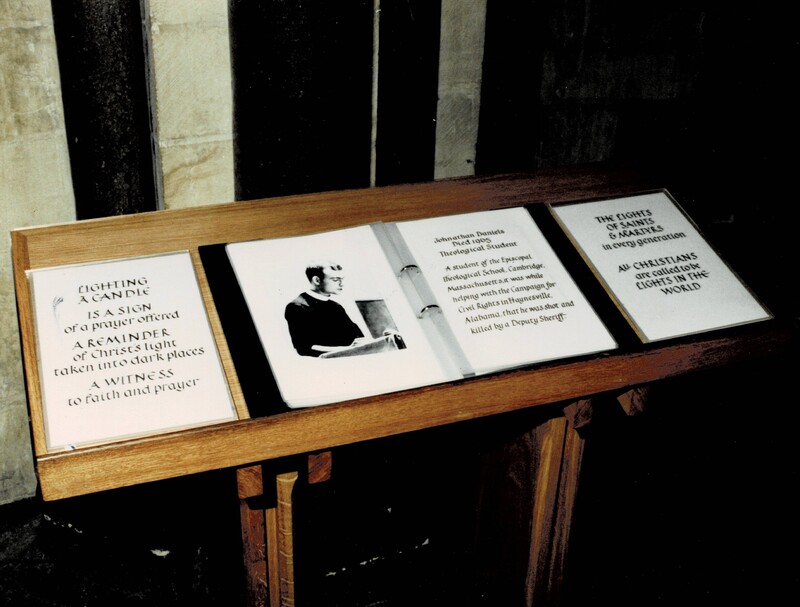 LIGHTING
A CANDLE
IS A SIGN
of a prayer offered
A REMINDER
of Christs light
taken into dark places
A WITNESS
to faith and prayer
Johnathan Daniels
Died 1965
Theological Student
A student of the Episcopal
Theological School, Cambridge,
Massachusetts, it was while
helping with the Campaign for
Civil Rights in Haynesville,
Alabama, that he was shot and
killed by a Deputy Sheriff.
THE LIGHTS
OF SAINTS
& MARTYRS
in every generation
All CHRISTIANS
are called to be
LIGHTS IN THE
WORLD